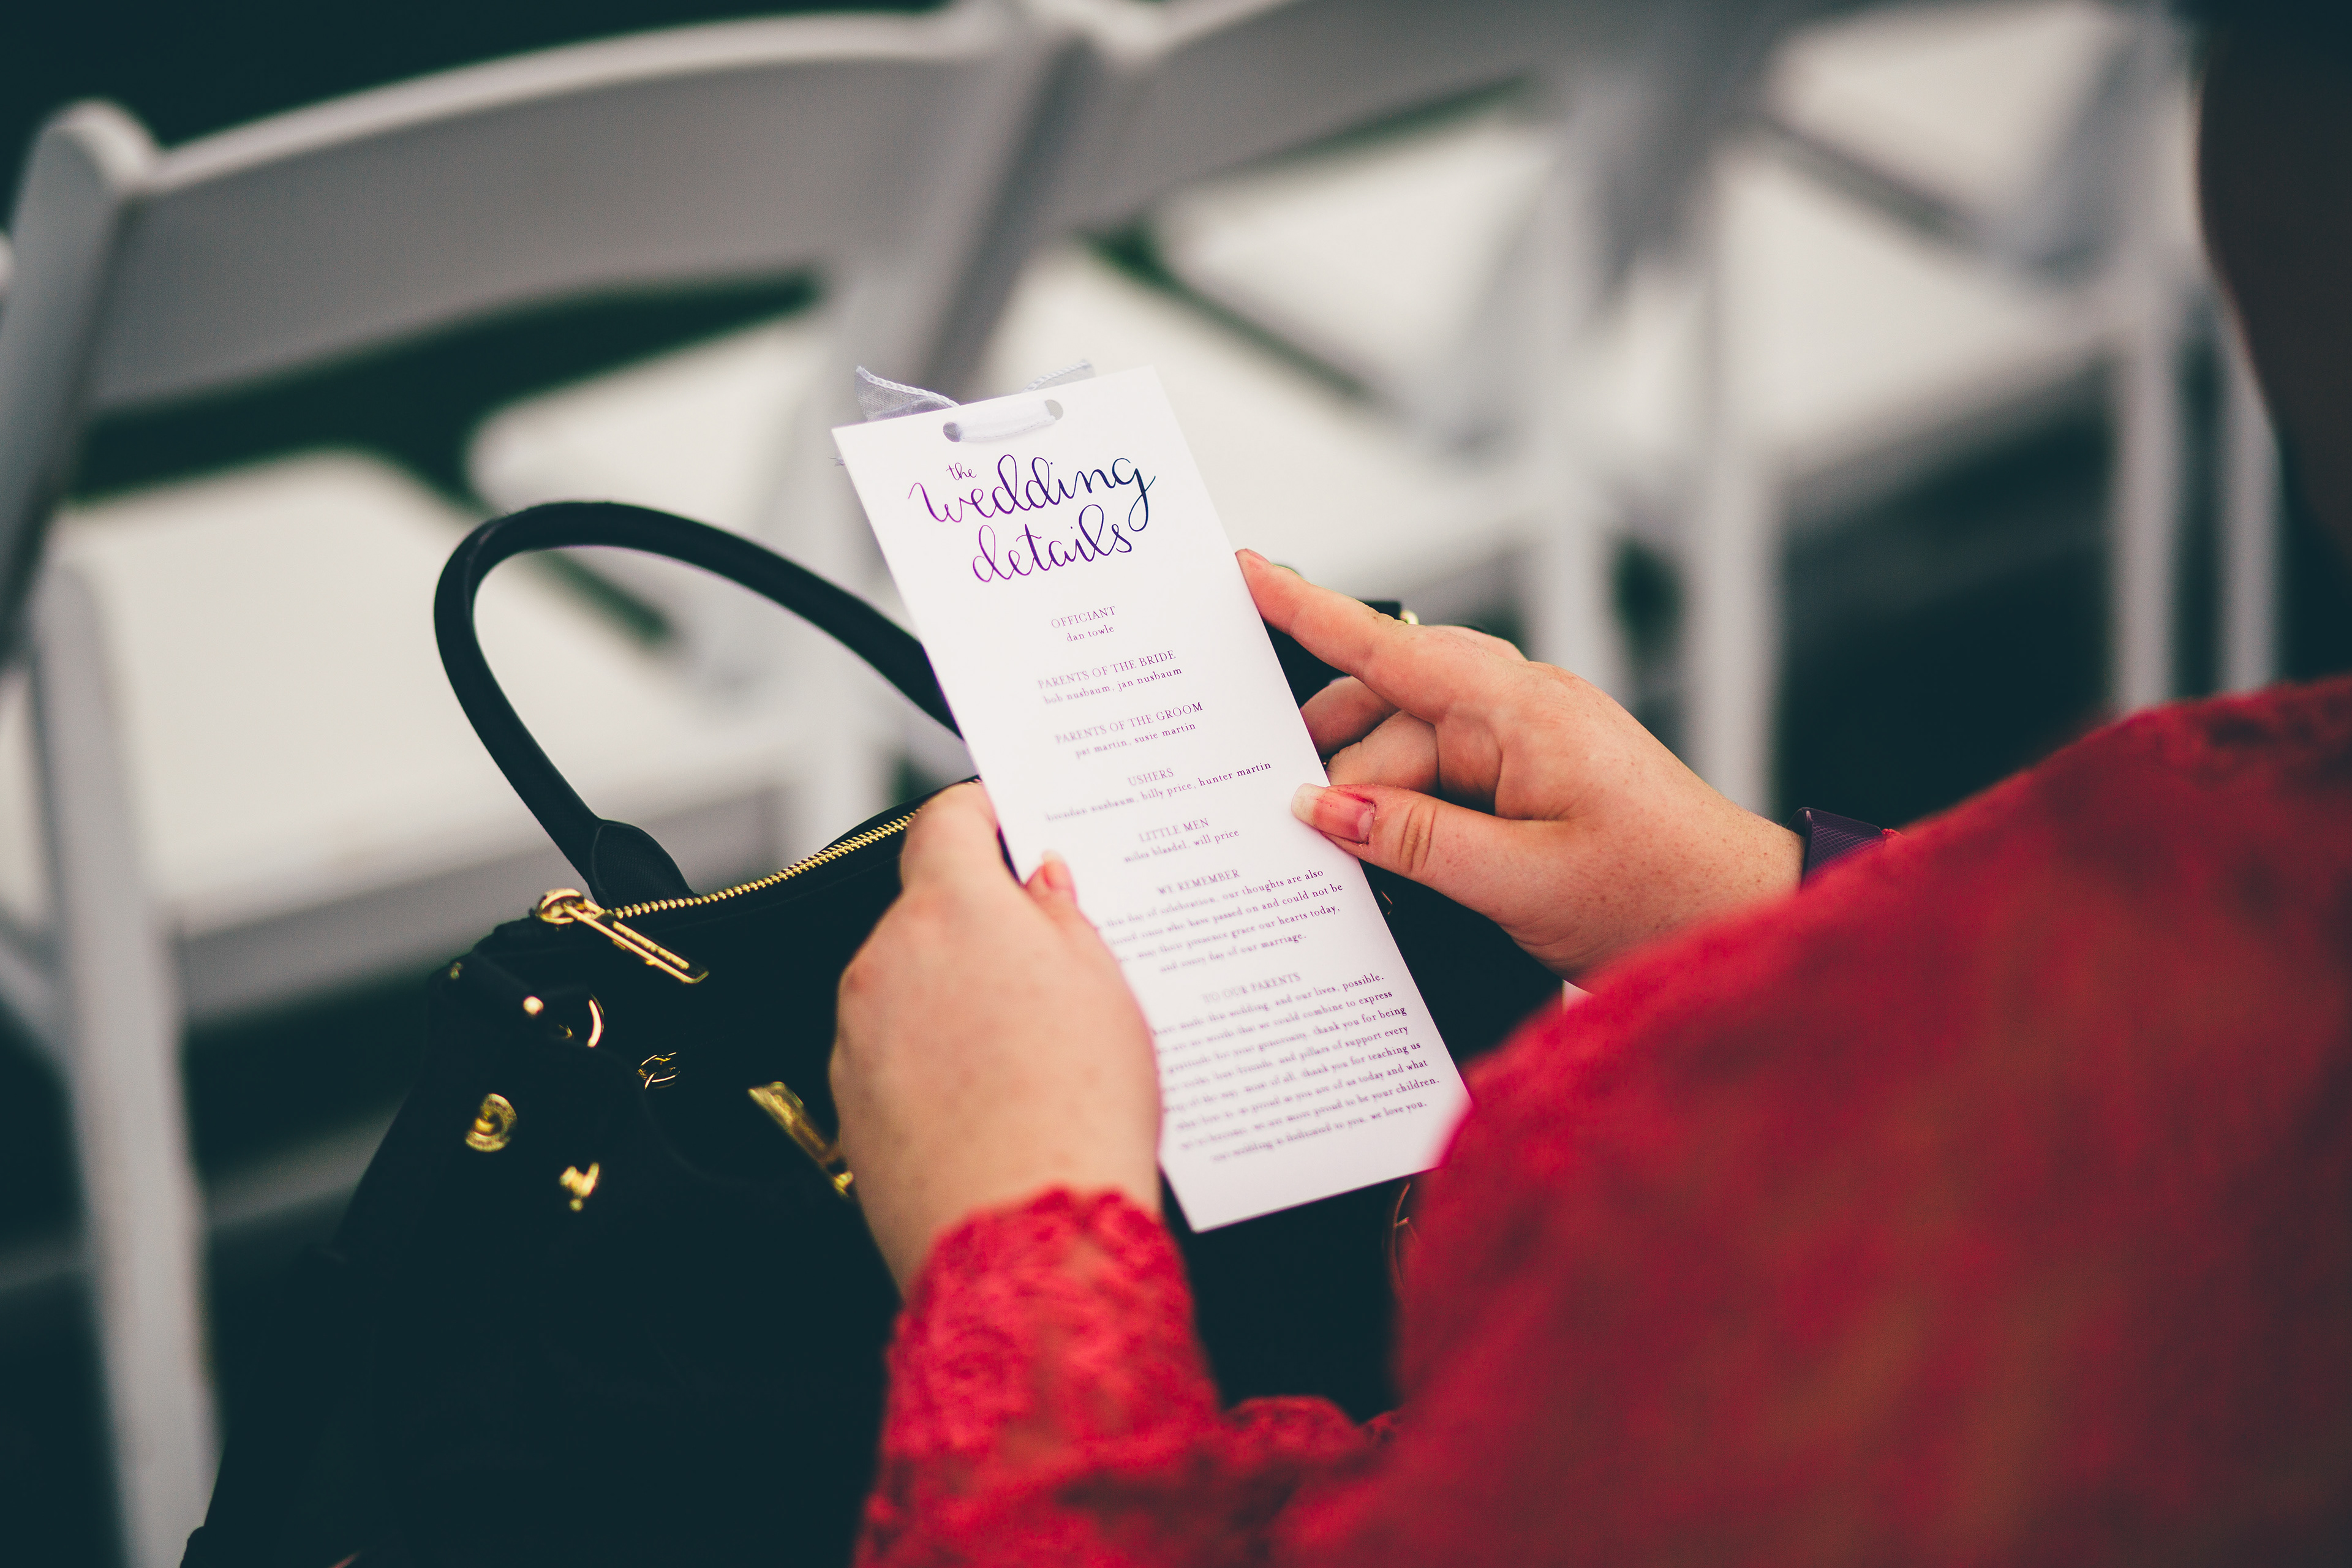 the
wedding
details
OFFICIANT
dan towle
PARENTS OF THE BRIDE
bob nusbaum, jan nusbaum
PARENTS OF THE GROOM
pat martin, susie martin
USHERS
brendan nusbaum, billy price, hunter martin
LITTLE MEN
miles blasdel, will price
WE REMEMBER
this day of celebration, our thoughts are also
loved ones who have passed on and could not be
may their presence grace our hearts today,
and every day of our marriage.
TO OUR PARENTS
made this wedding, and our lives, possible.
are no words that we could combine to express
gratitude for your generosity. thank you for being
and pillars of support every
of the way. most of all, thank you for teaching us
proud as you are of us today and what
we are more proud to be your children.
wedding is dedicated to you. we love you.